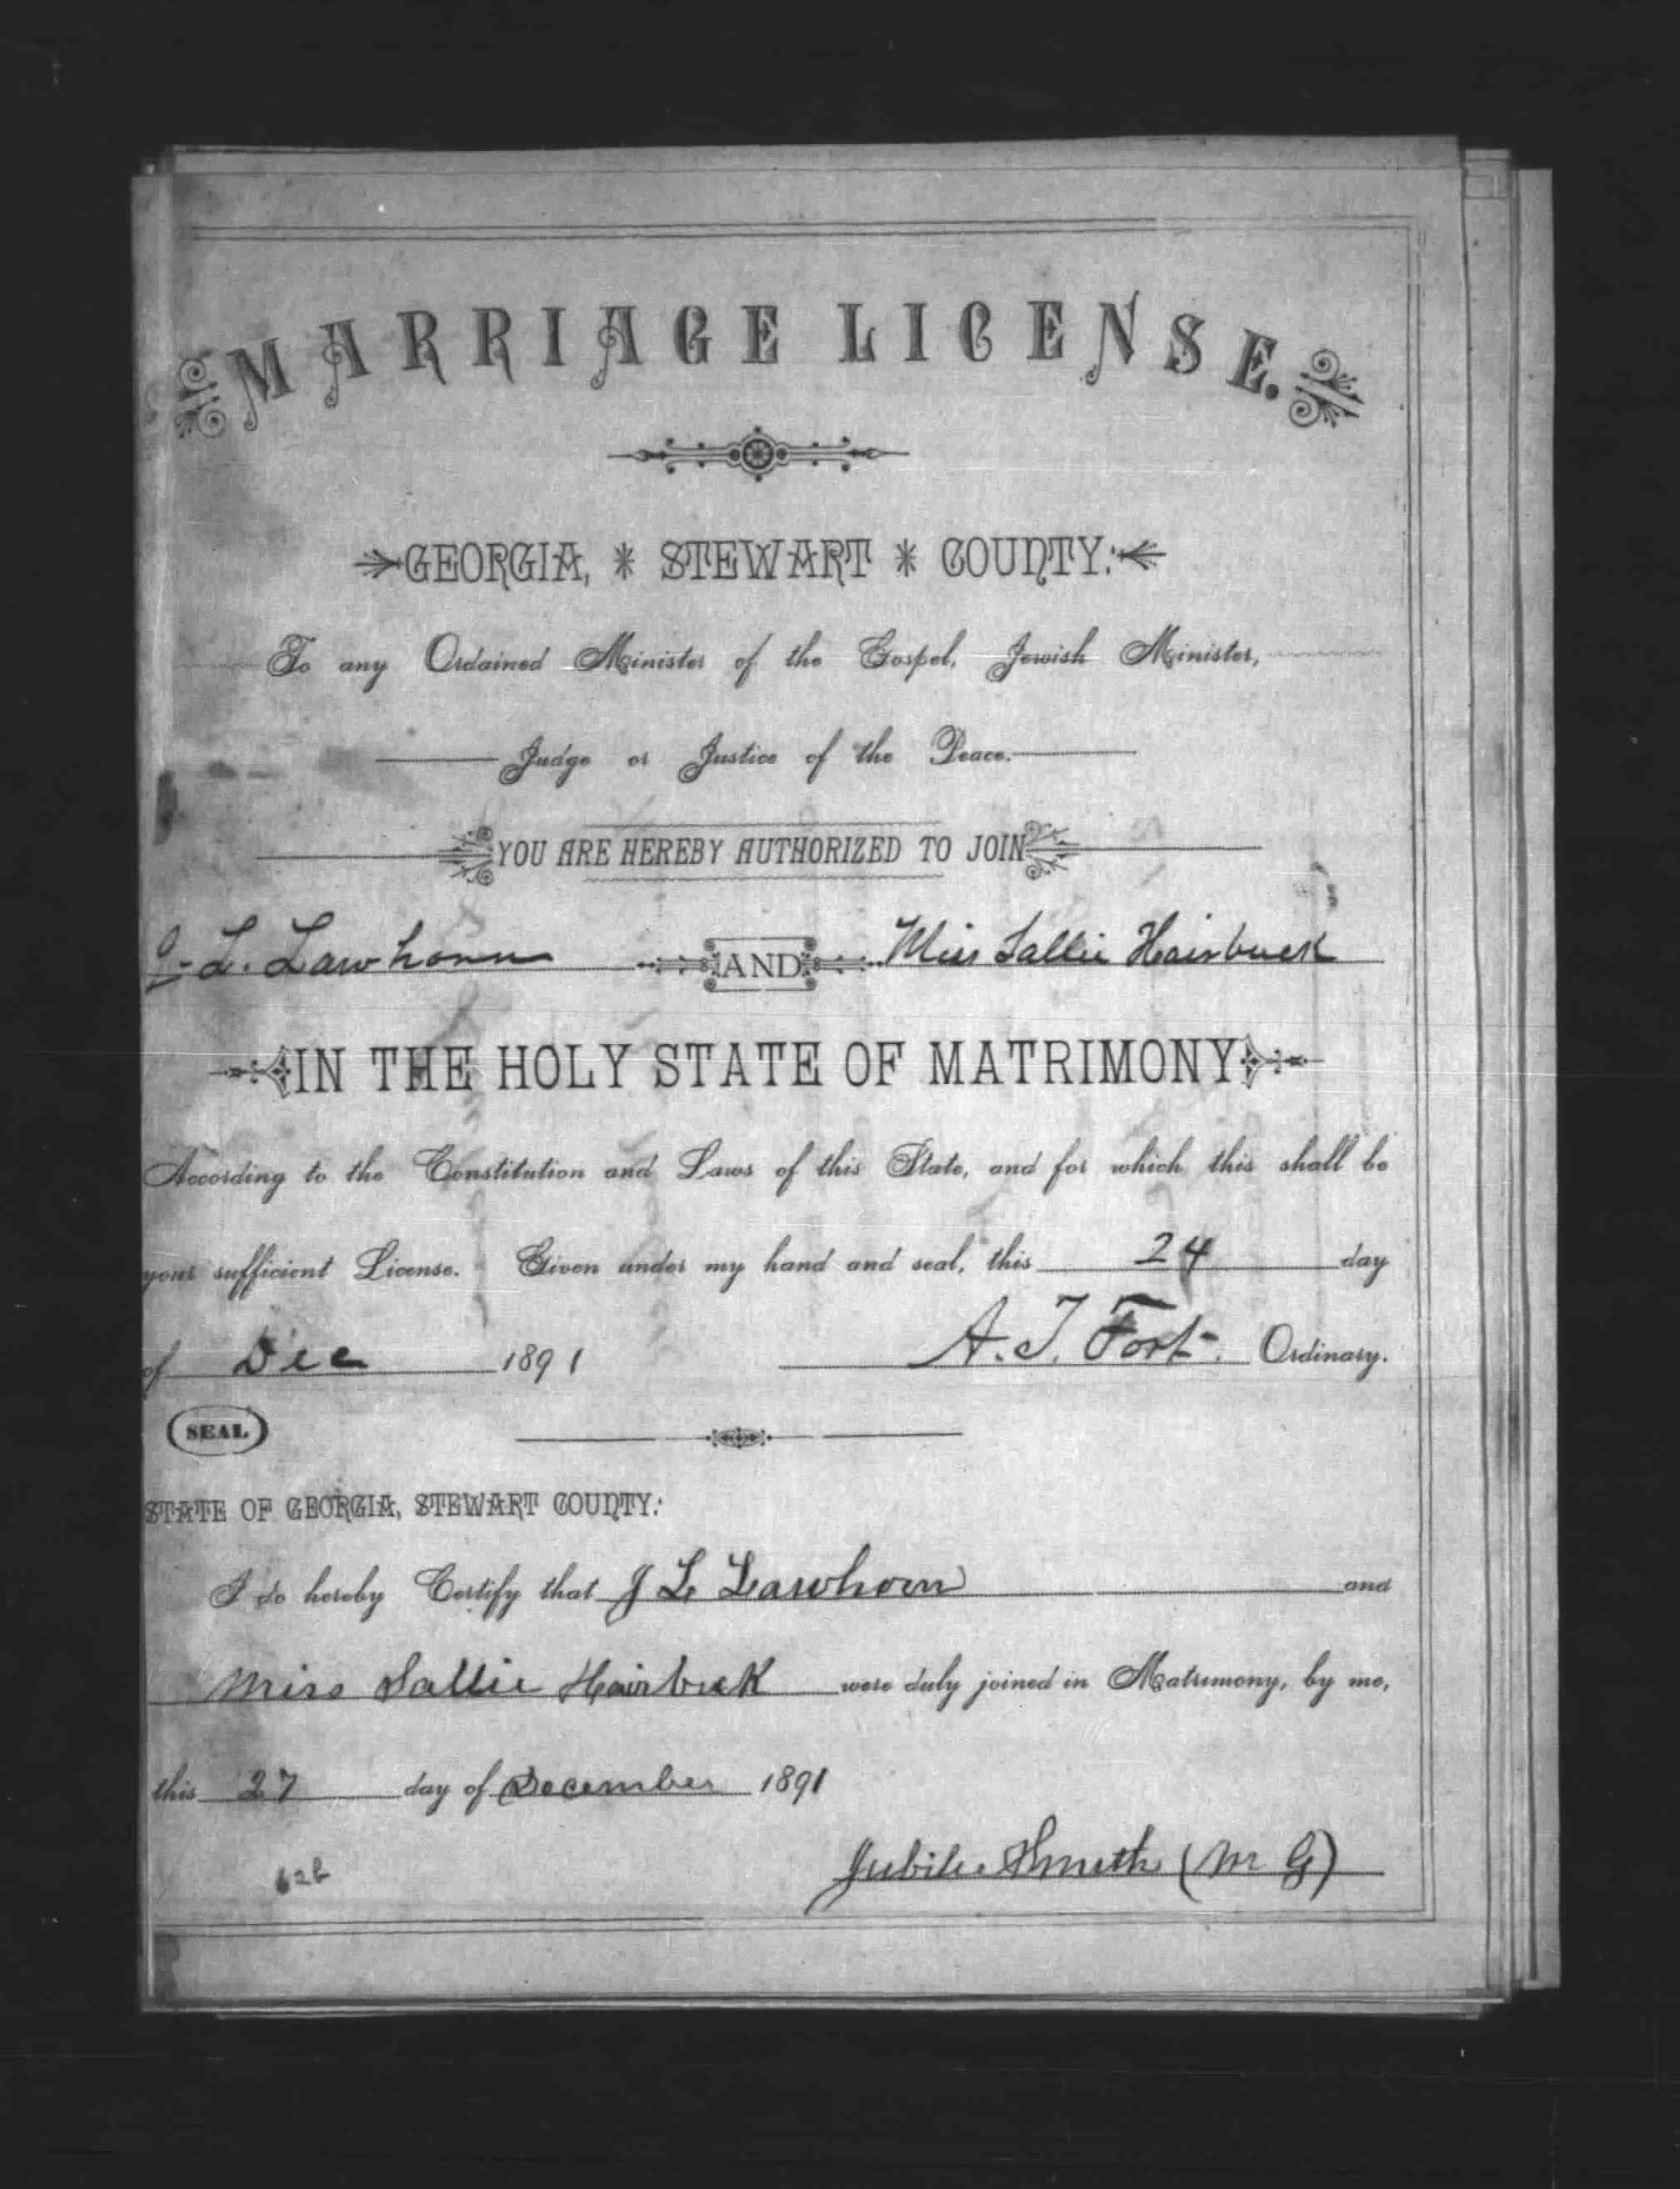 MARRIAGE LICENSE.
GEORGIA, * STEWART * COUNTY:
To any Ordained Minister of the Gospel, Jewish Minister,
Judge or Justice of the Peace.
YOU ARE HEREBY AUTHORIZED TO JOIN
J. L. Lawhorn AND Miss Sallie Hairbuck
IN THE HOLY STATE OF MATRIMONY
According to the Constitution and Laws of this State, and for which this shall be
your sufficient License. Given under my hand and seal, this 24 day
of Dec 1891 A. T. Fort. Ordinary.
SEAL
STATE OF GEORGIA, STEWART COUNTY:
I do hereby Certify that J L Lawhorn and
Miss Sallie Hairbuck were duly joined in Matrimony, by me,
this 27 day of December 1891
Jubile Smith (M G)